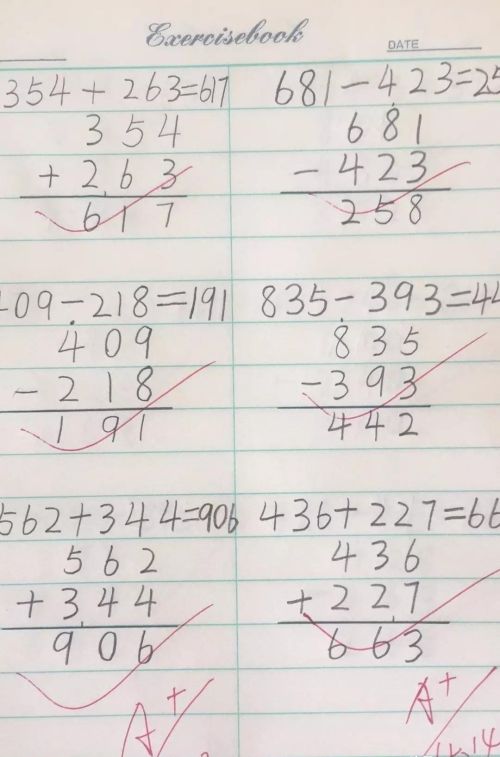 Exercisebook
DATE
354 + 263=617
354
+ 263
617
681 - 423=25
681
- 423
258
409-218=191
409
- 218
191
835-393=44
835
-393
442
562+344=906
562
+344
906
436+227=66
436
+227
663
A+
A+